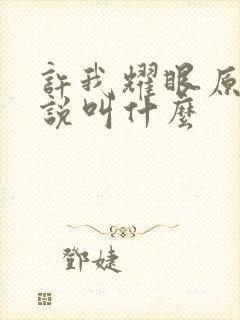 許我耀眼原
說叫什麼
鄧婕